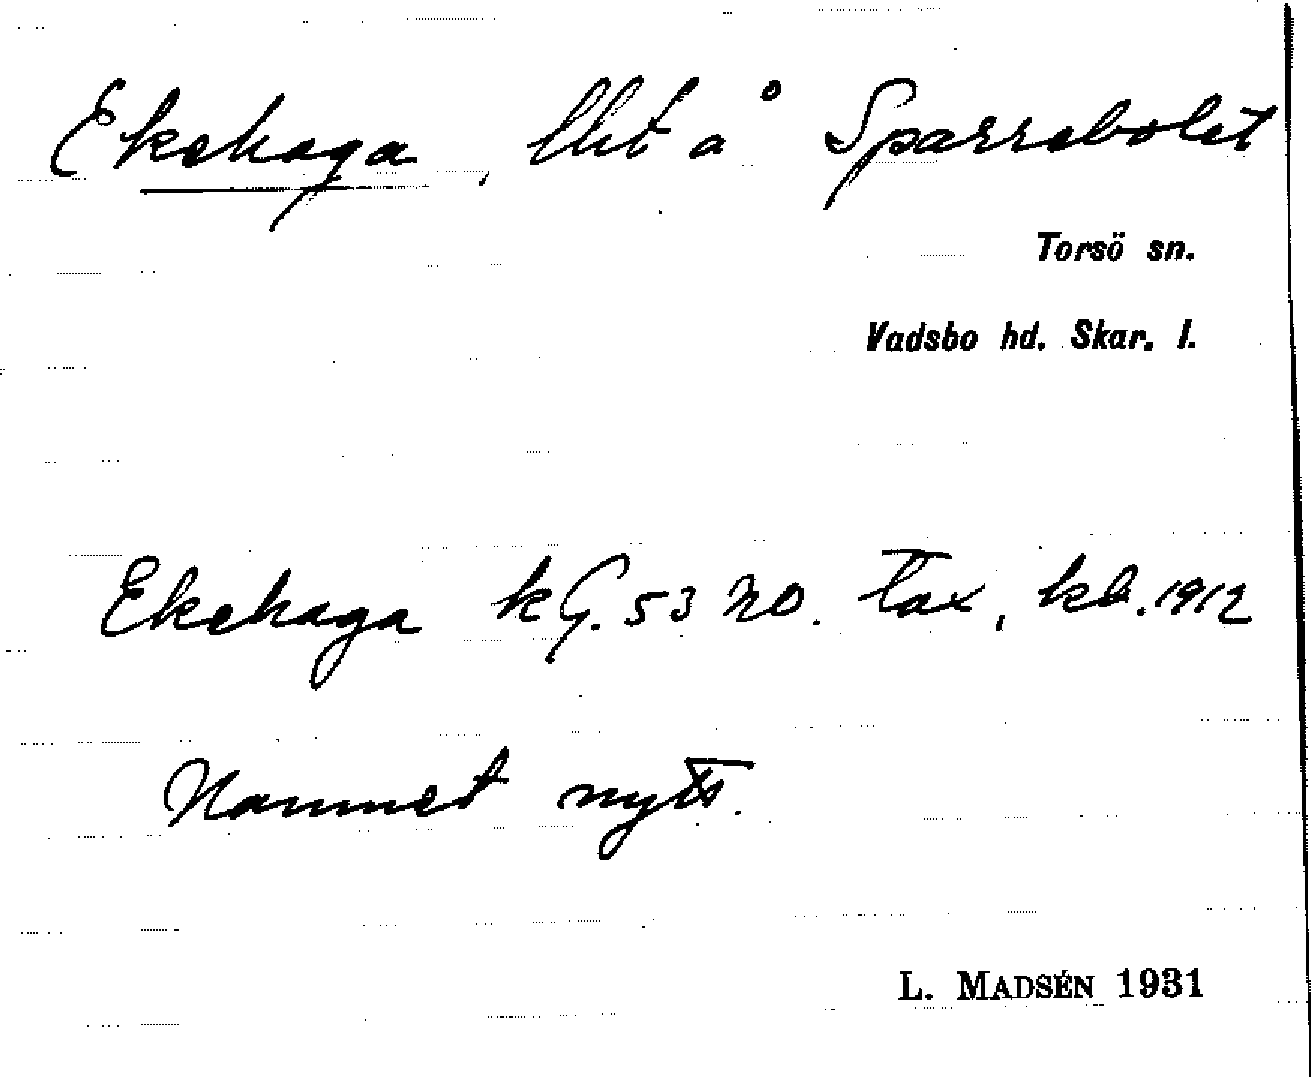 Ekehaga, lht å Sparrebolet
Torsö sn.
Vadsbo hd. Skar. l.
Ekehaga kG. 53 NO. Tax, kb. 1912
Namnet nytt.
L. MADSÉN 1931